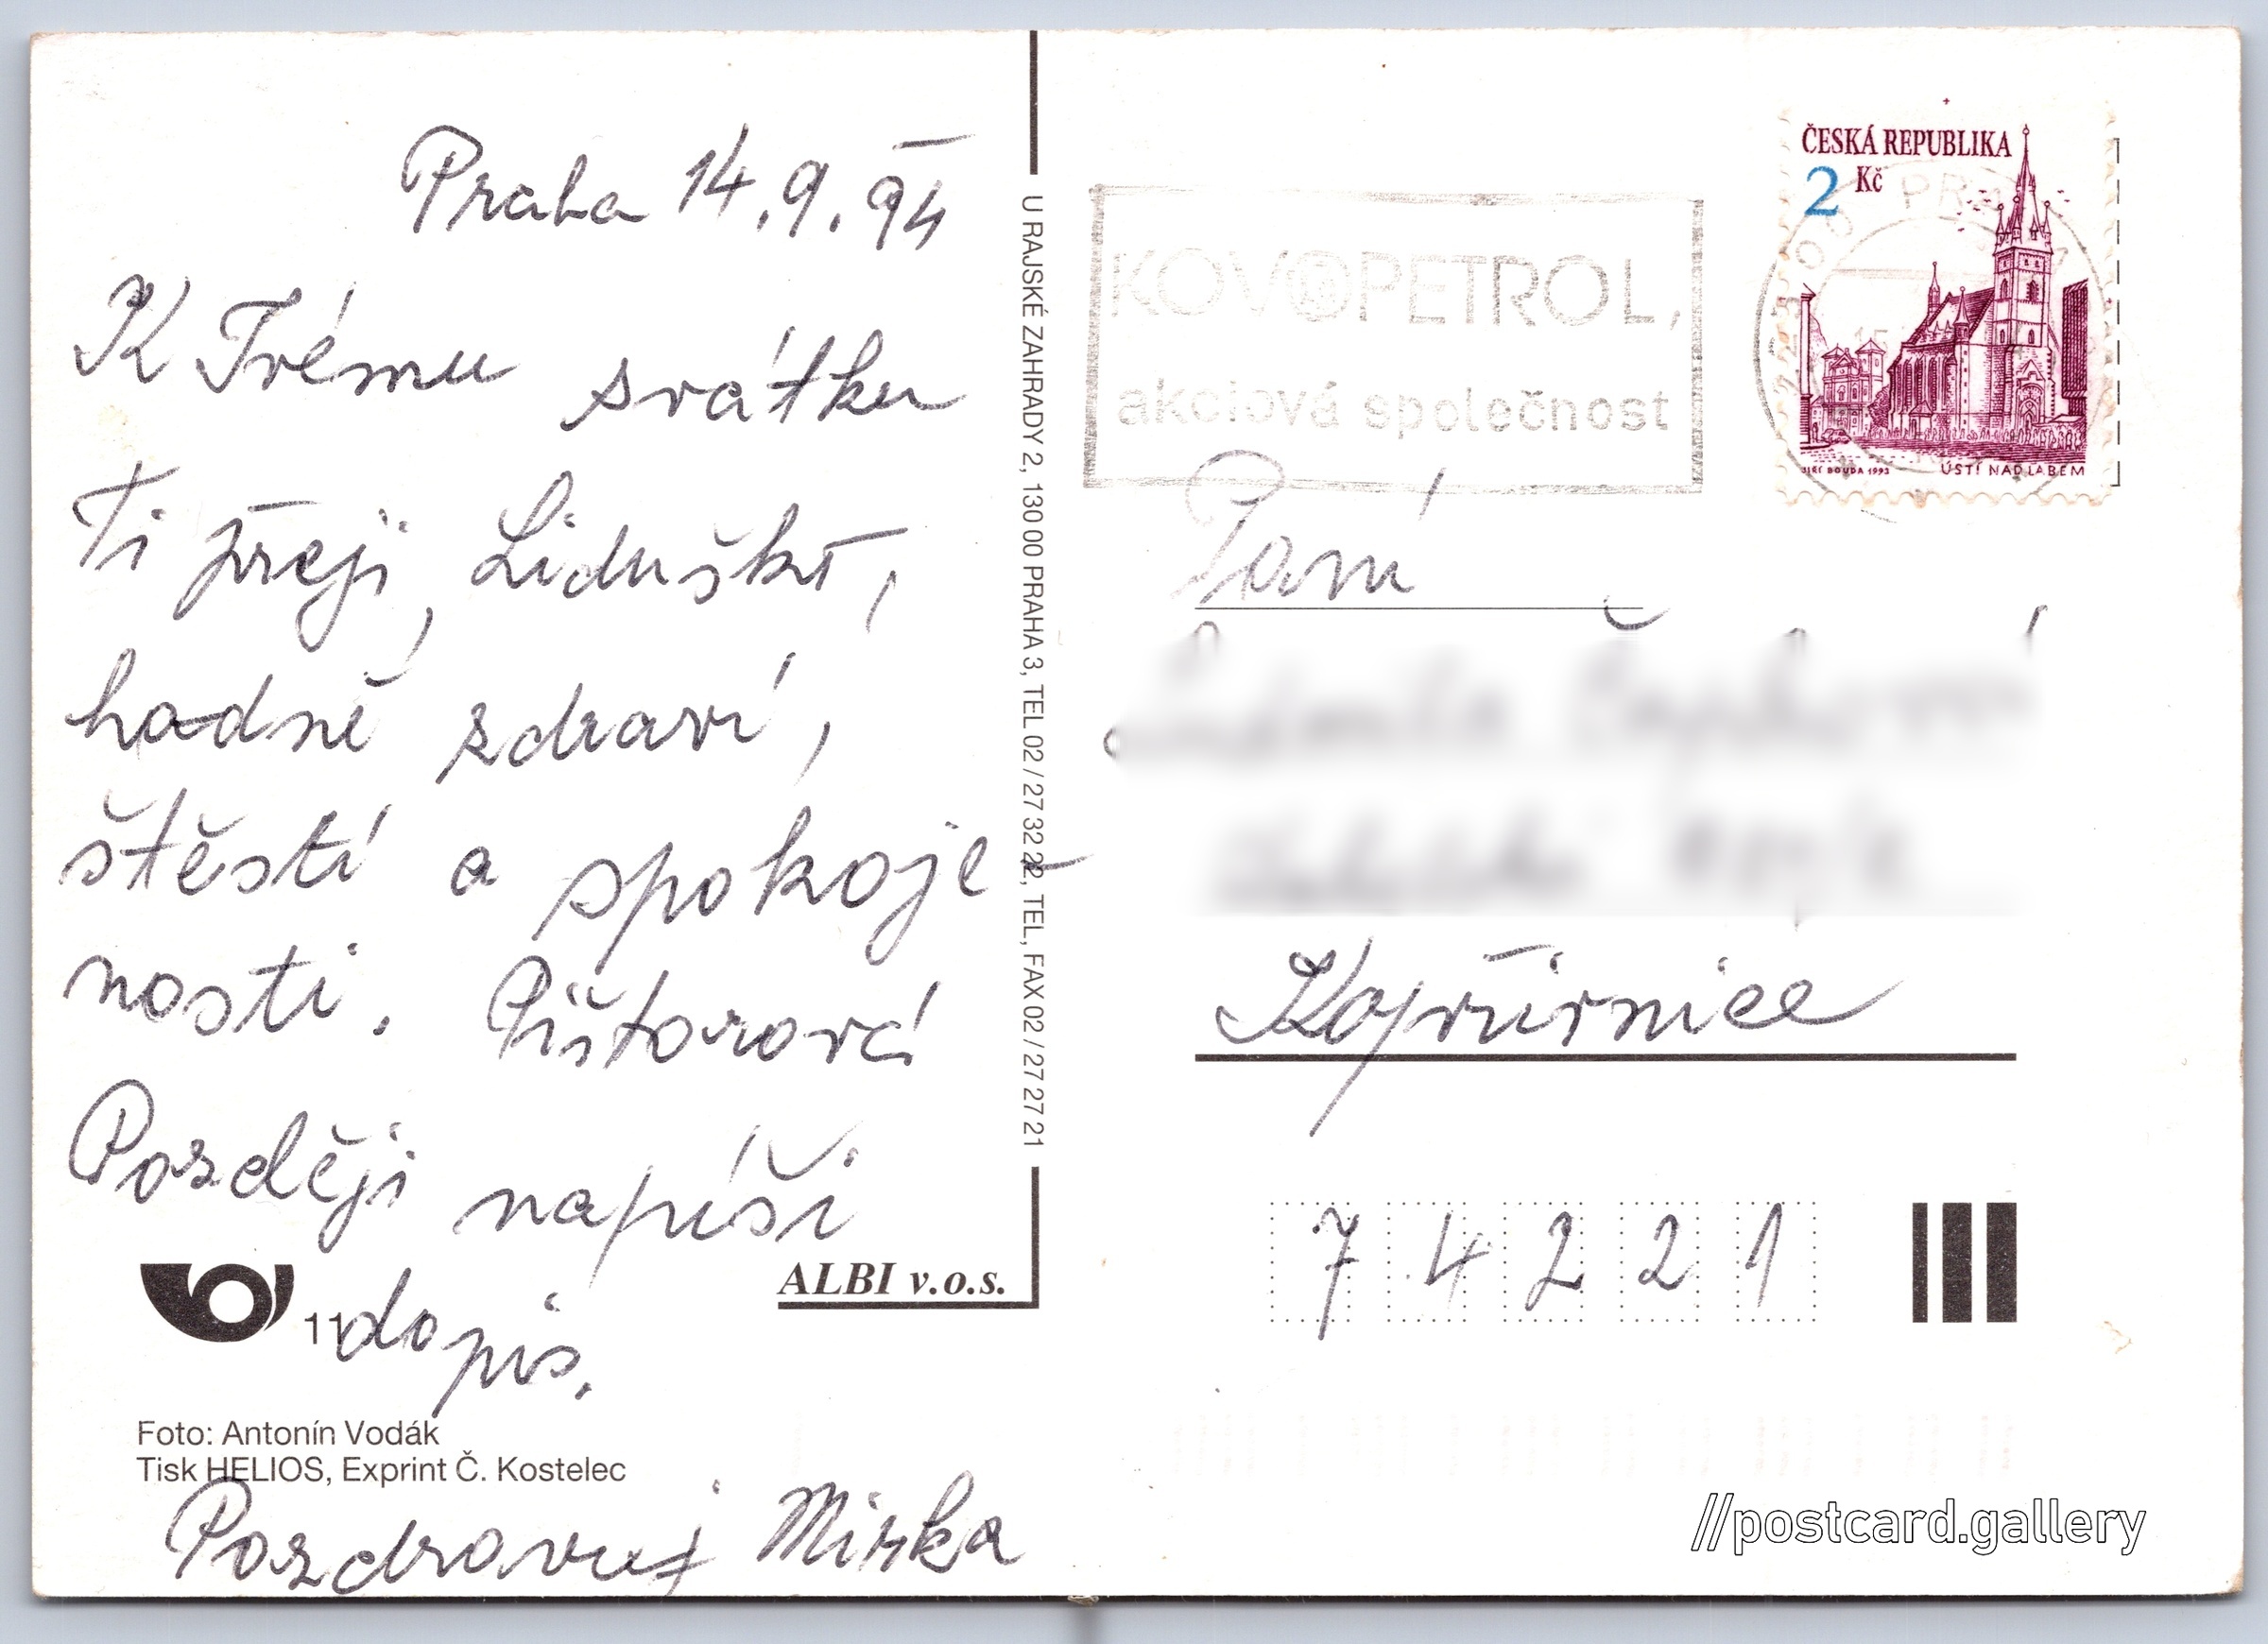 Praha 14.9.94
K Tvému svátku
Ti přeji, Liduško,
hodně zdraví,
štěstí a spokoje-
nosti. Píštorová
Později napíši
dopis.
Pozdravuj Mirka
11
ALBI v.o.s.
Foto: Antonín Vodák
Tisk HELIOS, Exprint Č. Kostelec
U RAJSKÉ ZAHRADY 2, 130 00 PRAHA 3, TEL 02 / 27 32 22, TEL, FAX 02 / 27 27 21
KOVOPETROL,
akciová společnost
ČESKÁ REPUBLIKA
2 Kč
JIŘÍ BOUDA 1993 ÚSTÍ NAD LABEM
Paní
Kopřivnice
74221
//postcard.gallery